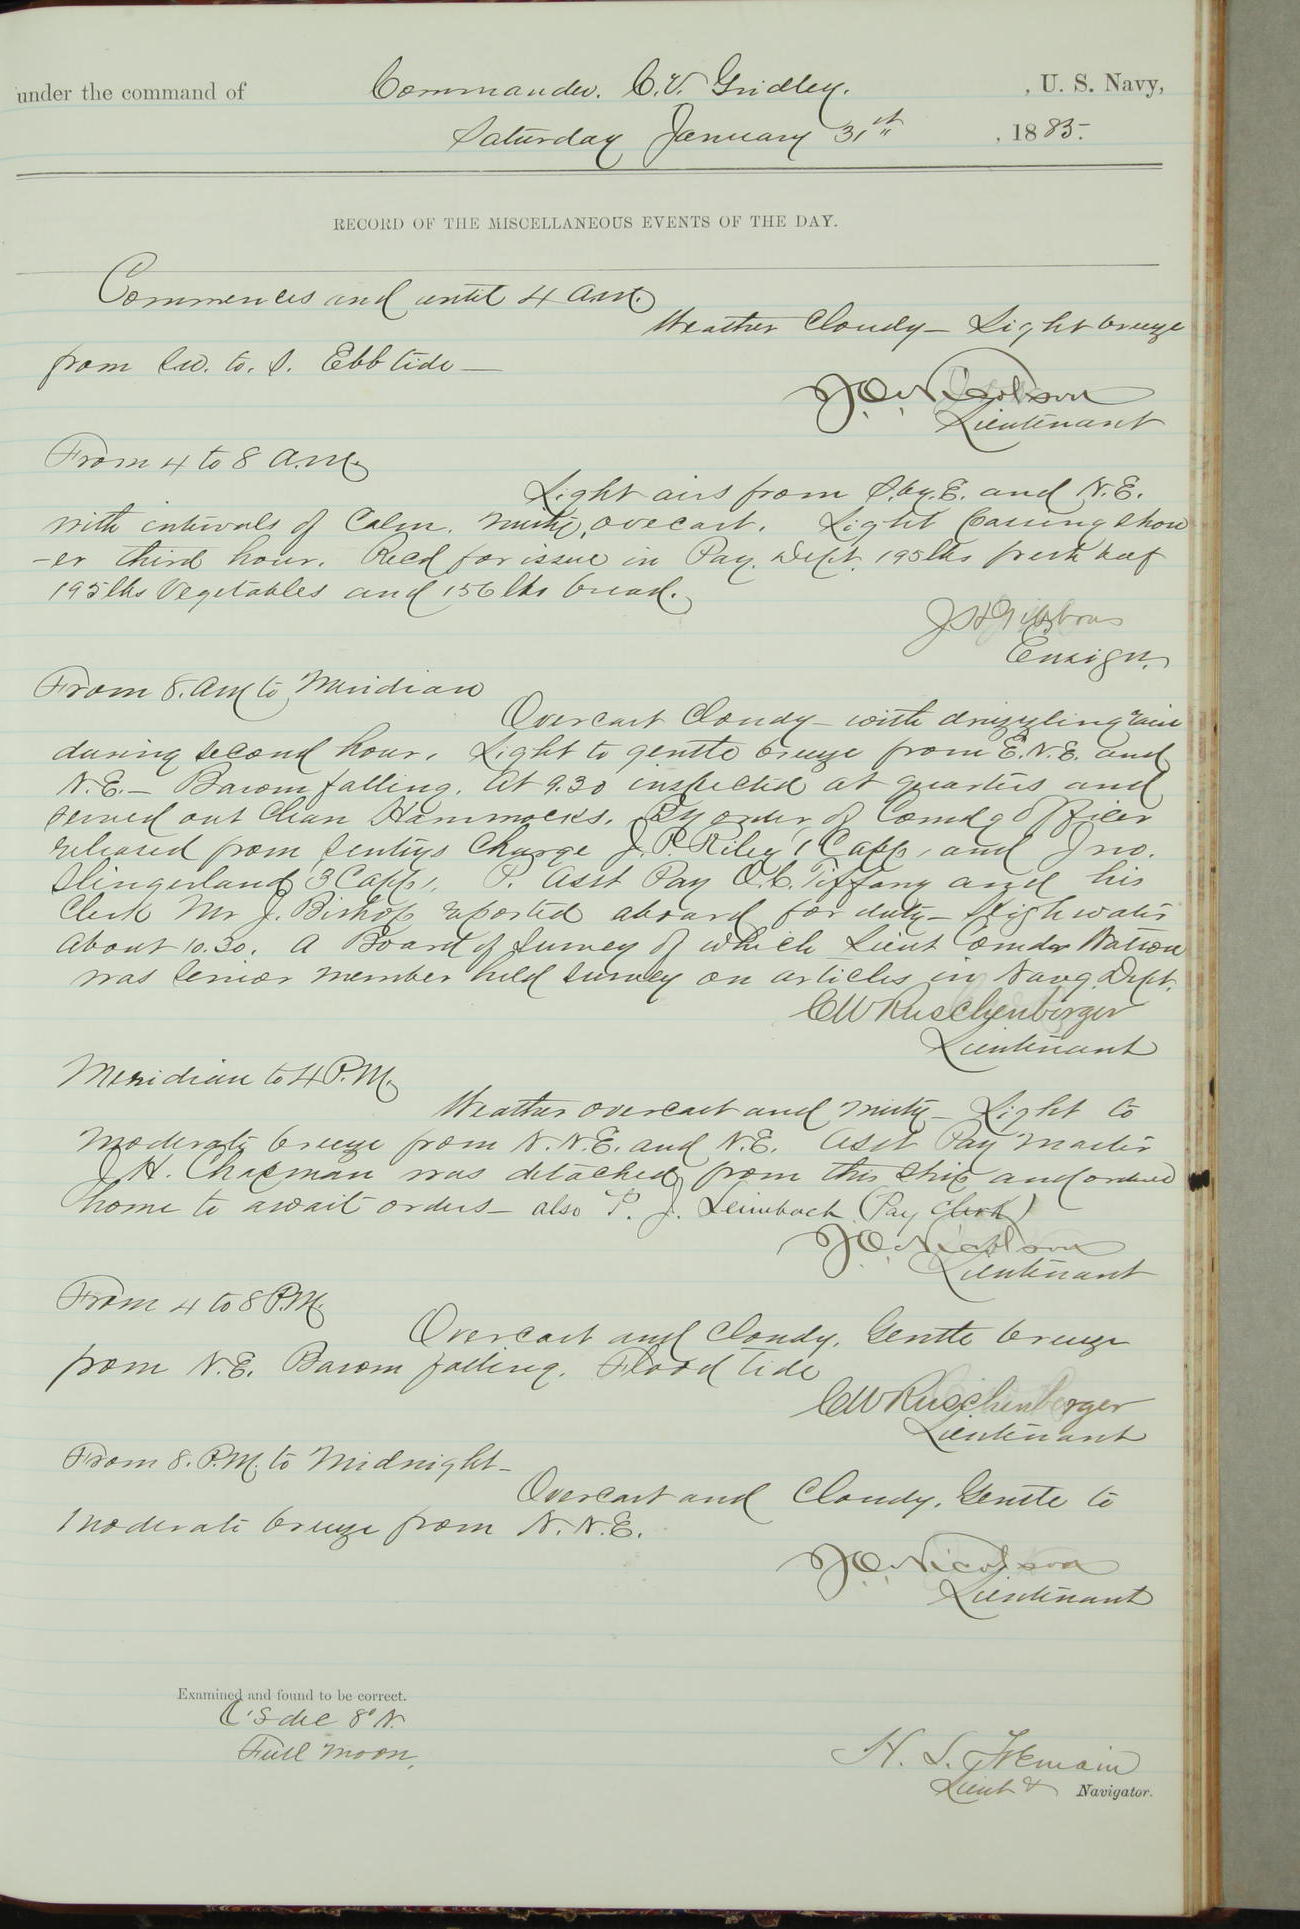 under the command of Commander. C.V. Gridley. , U. S. Navy,
Saturday January 31st , 1885.
RECORD OF THE MISCELLANEOUS EVENTS OF THE DAY.
Commences and until 4 a.m.
Weather Cloudy - Light breeze
from S.W. to. S. Ebb tide -
Lieutenant
From 4 to 8 a.m.
Light airs from S.by.E. and N.E.
with intervals of Calm. Misty, ovecast. Light passing show
-er third hour. Recd for issue in Pay. Dept. 195 lbs fresh beef
195 lbs Vegetables and 156 lbs bread.
J H Gibbons
Ensign.
From 8. a.m. to Meridian
Overcast Cloudy - with drizzling rain
during second hour. Light to gentle breeze from E.N.E. and
N.E. - Barom falling. At 9.30 inspected at quarters and
served out Clean Hammocks. By order of Comdg Officer
released from sentrys Charge J. R. Riley, 1 Capp, and Jno.
Slingerland 3 Capp,. P. Asst Pay O.C. Tiffany and his
Clerk Mr J. Bishop reported aboard for duty - High water
about 10.30. A Board of Survey of which Lieut Comdr Watson
was senior member held survey on articles in Navg. Dept.
C W Ruschenberger
Lieutenant
Meridian to 4 P.M.
Weather overcast and misty - Light to
moderate breeze from N.N.E. and N.E. Asst Pay Master
J H. Chapman was detached from this ship and ordered
home to await orders - also P. J. Leimbach (Pay Clerk)
J. O. Nicolson
Lieutenant
From 4 to 8 P.M.
Overcast and Cloudy. Gentle breeze
from N.E. Barom falling. Flood tide
C W Ruschenberger
Lieutenant
From 8. P.M. to Midnight -
Overcast and Cloudy. Gentle to
moderate breeze from N.N.E.
J. O. Nicolson
Lieutenant
Examined and found to be correct.
☾'s dec 8° N.
Full Moon,
H. S.
Lieut & Navigator.